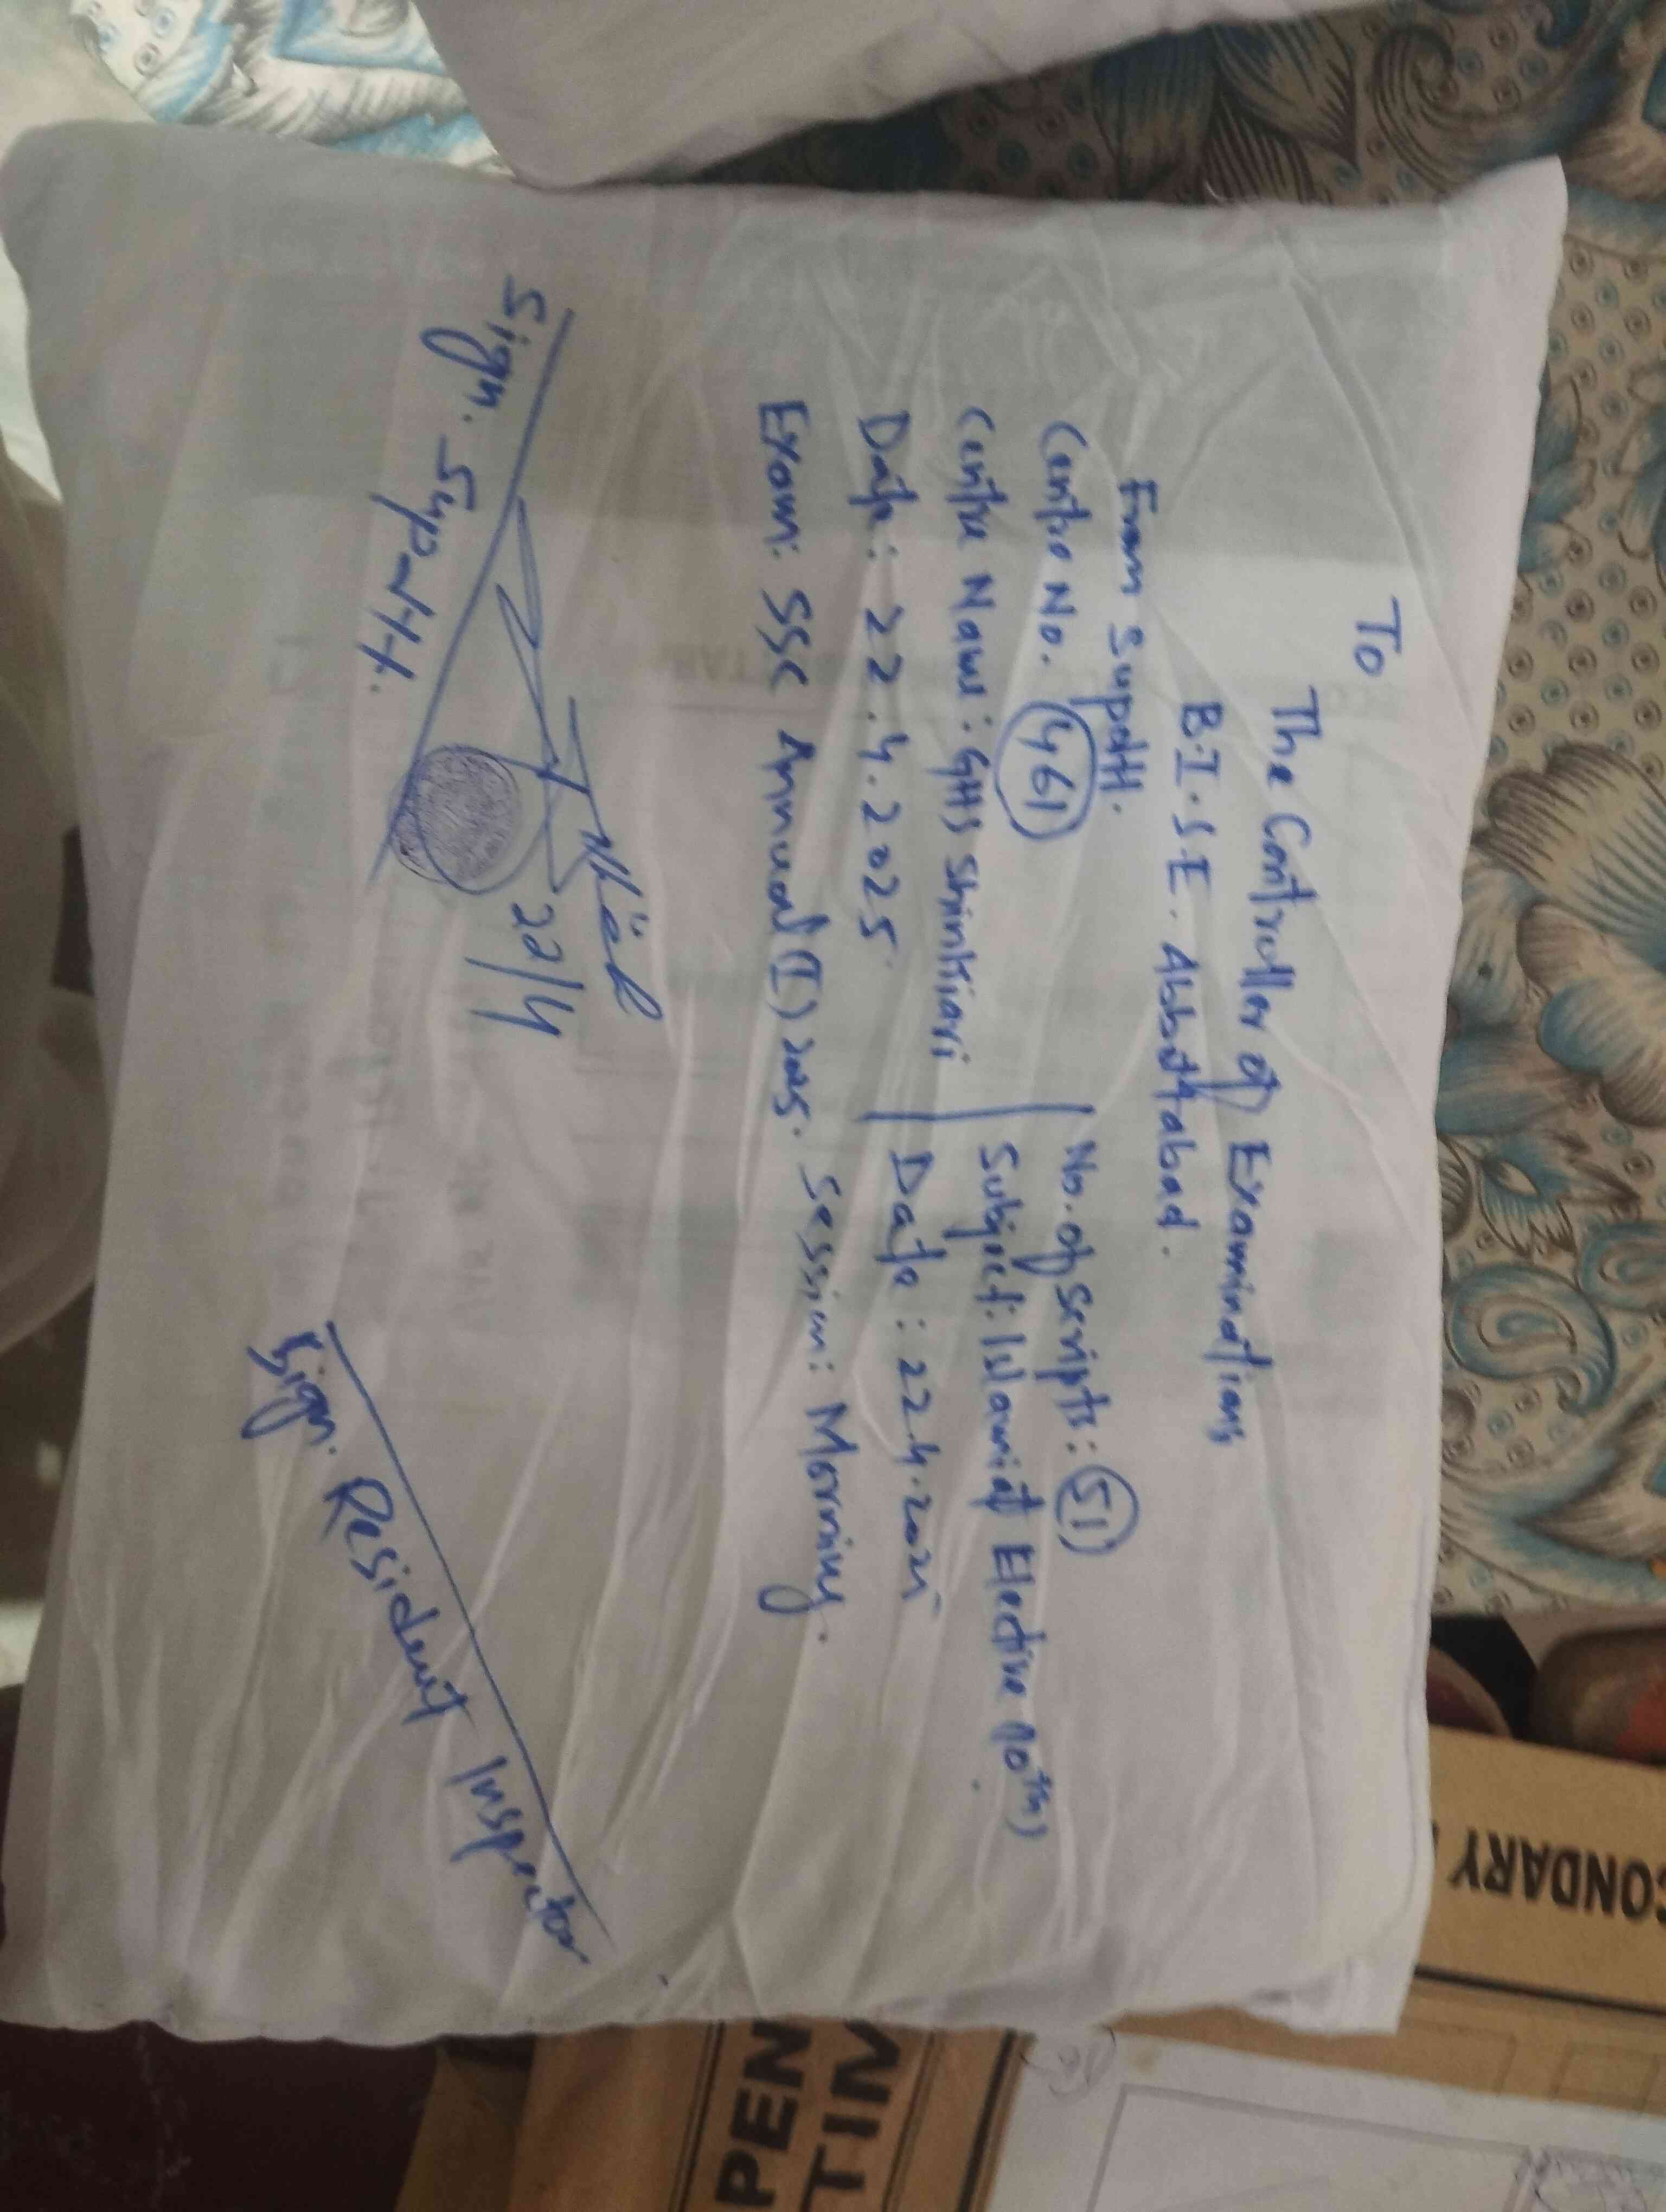 To
The Controller of Examinations,
B.I.S.E. Abbottabad.
From Supdtt.
Centre No. 461
No. of scripts: 51
Centre Name: GHS Shinkiari
Subject: Islamiat Elective (10th)
Date: 22.4.2025
Date: 22.4.2025
Exam: SSC Annual (I) 2025. Session: Morning.
22/4
Sign. Supdtt.
Sign. Resident Inspector
CONDARY
PEN
TIM